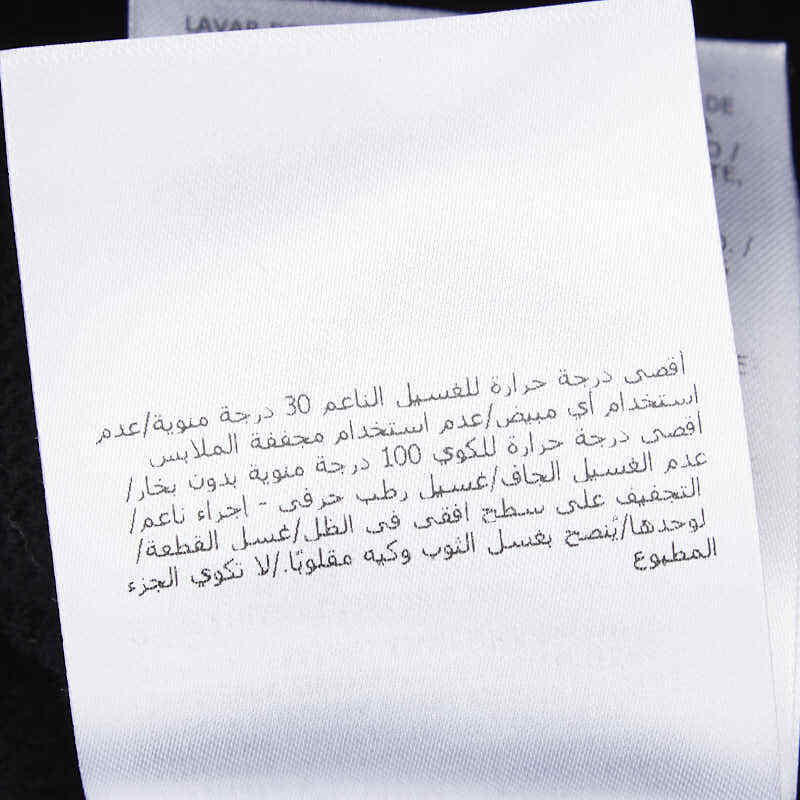 LAVAR
DE
/
TE,
. /
E
أقصى درجة حرارة للغسيل الناعم 30 درجة مئوية/عدم
استخدام أي مبيض/عدم استخدام مجففة الملابس
أقصى درجة حرارة للكوي 100 درجة مئوية بدون بخار/
عدم الغسيل الجاف/غسيل رطب حرفى - اجراء ناعم/
التجفيف على سطح افقى فى الظل/غسل القطعة/
لوحدها/يُنصح بغسل الثوب وكيه مقلوبًا./لا تكوي الجزء
المطبوع